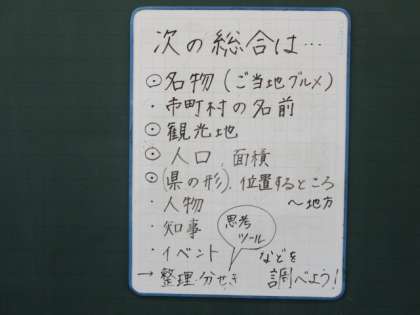 次の総合は…
⊙名物(ご当地グルメ)
・市町村の名前
⊙観光地
⊙人口、面積
⊙(県の形)、位置するところ
・人物 〜地方
・知事
思考
ツール
・イベント などを
→整理・分せき 調べよう!